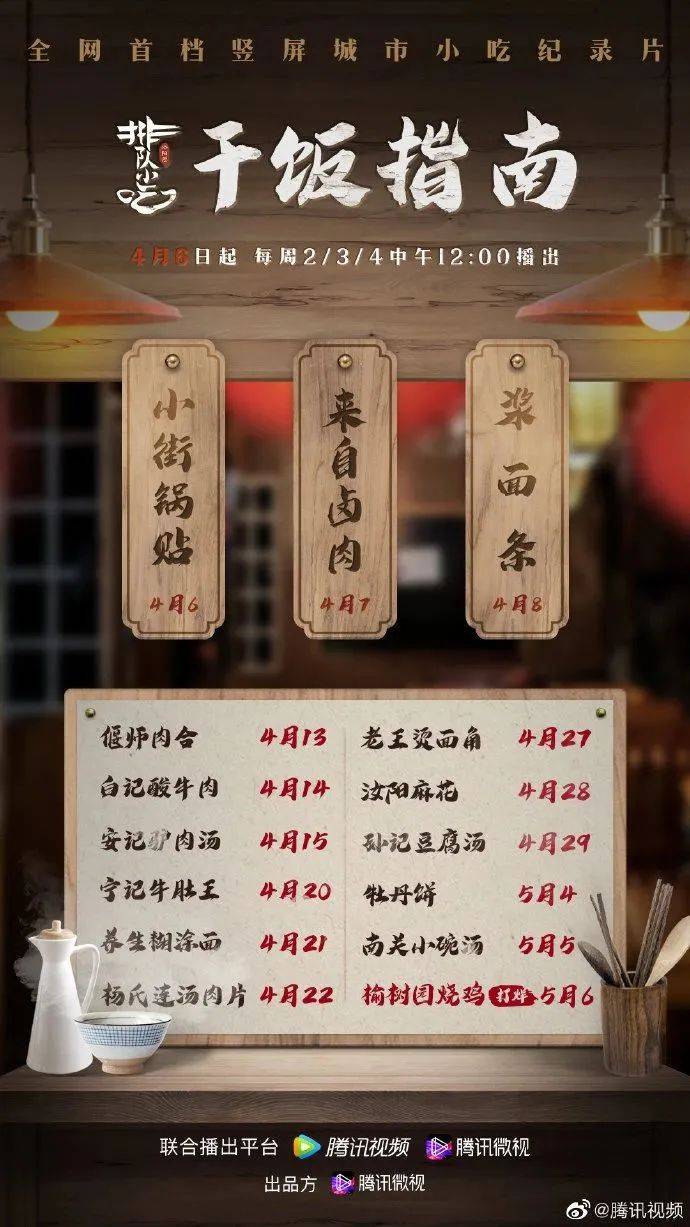 全网首档竖屏城市小吃纪录片
排队小吃
干饭指南
4月6日起 每周2/3/4中午12:00播出
小街锅贴
4月6
来自卤肉
4月7
浆面条
4月8
偃师肉合 4月13
白记酸牛肉 4月14
安记驴肉汤 4月15
宁记牛肚王 4月20
养生糊涂面 4月21
杨氏连汤肉片 4月22
老王烫面角 4月27
汝阳麻花 4月28
孙记豆腐汤 4月29
牡丹饼 5月4
南关小碗汤 5月5
榆树园烧鸡 打烊 5月6
联合播出平台 腾讯视频 腾讯微视
出品方 腾讯微视
@腾讯视频